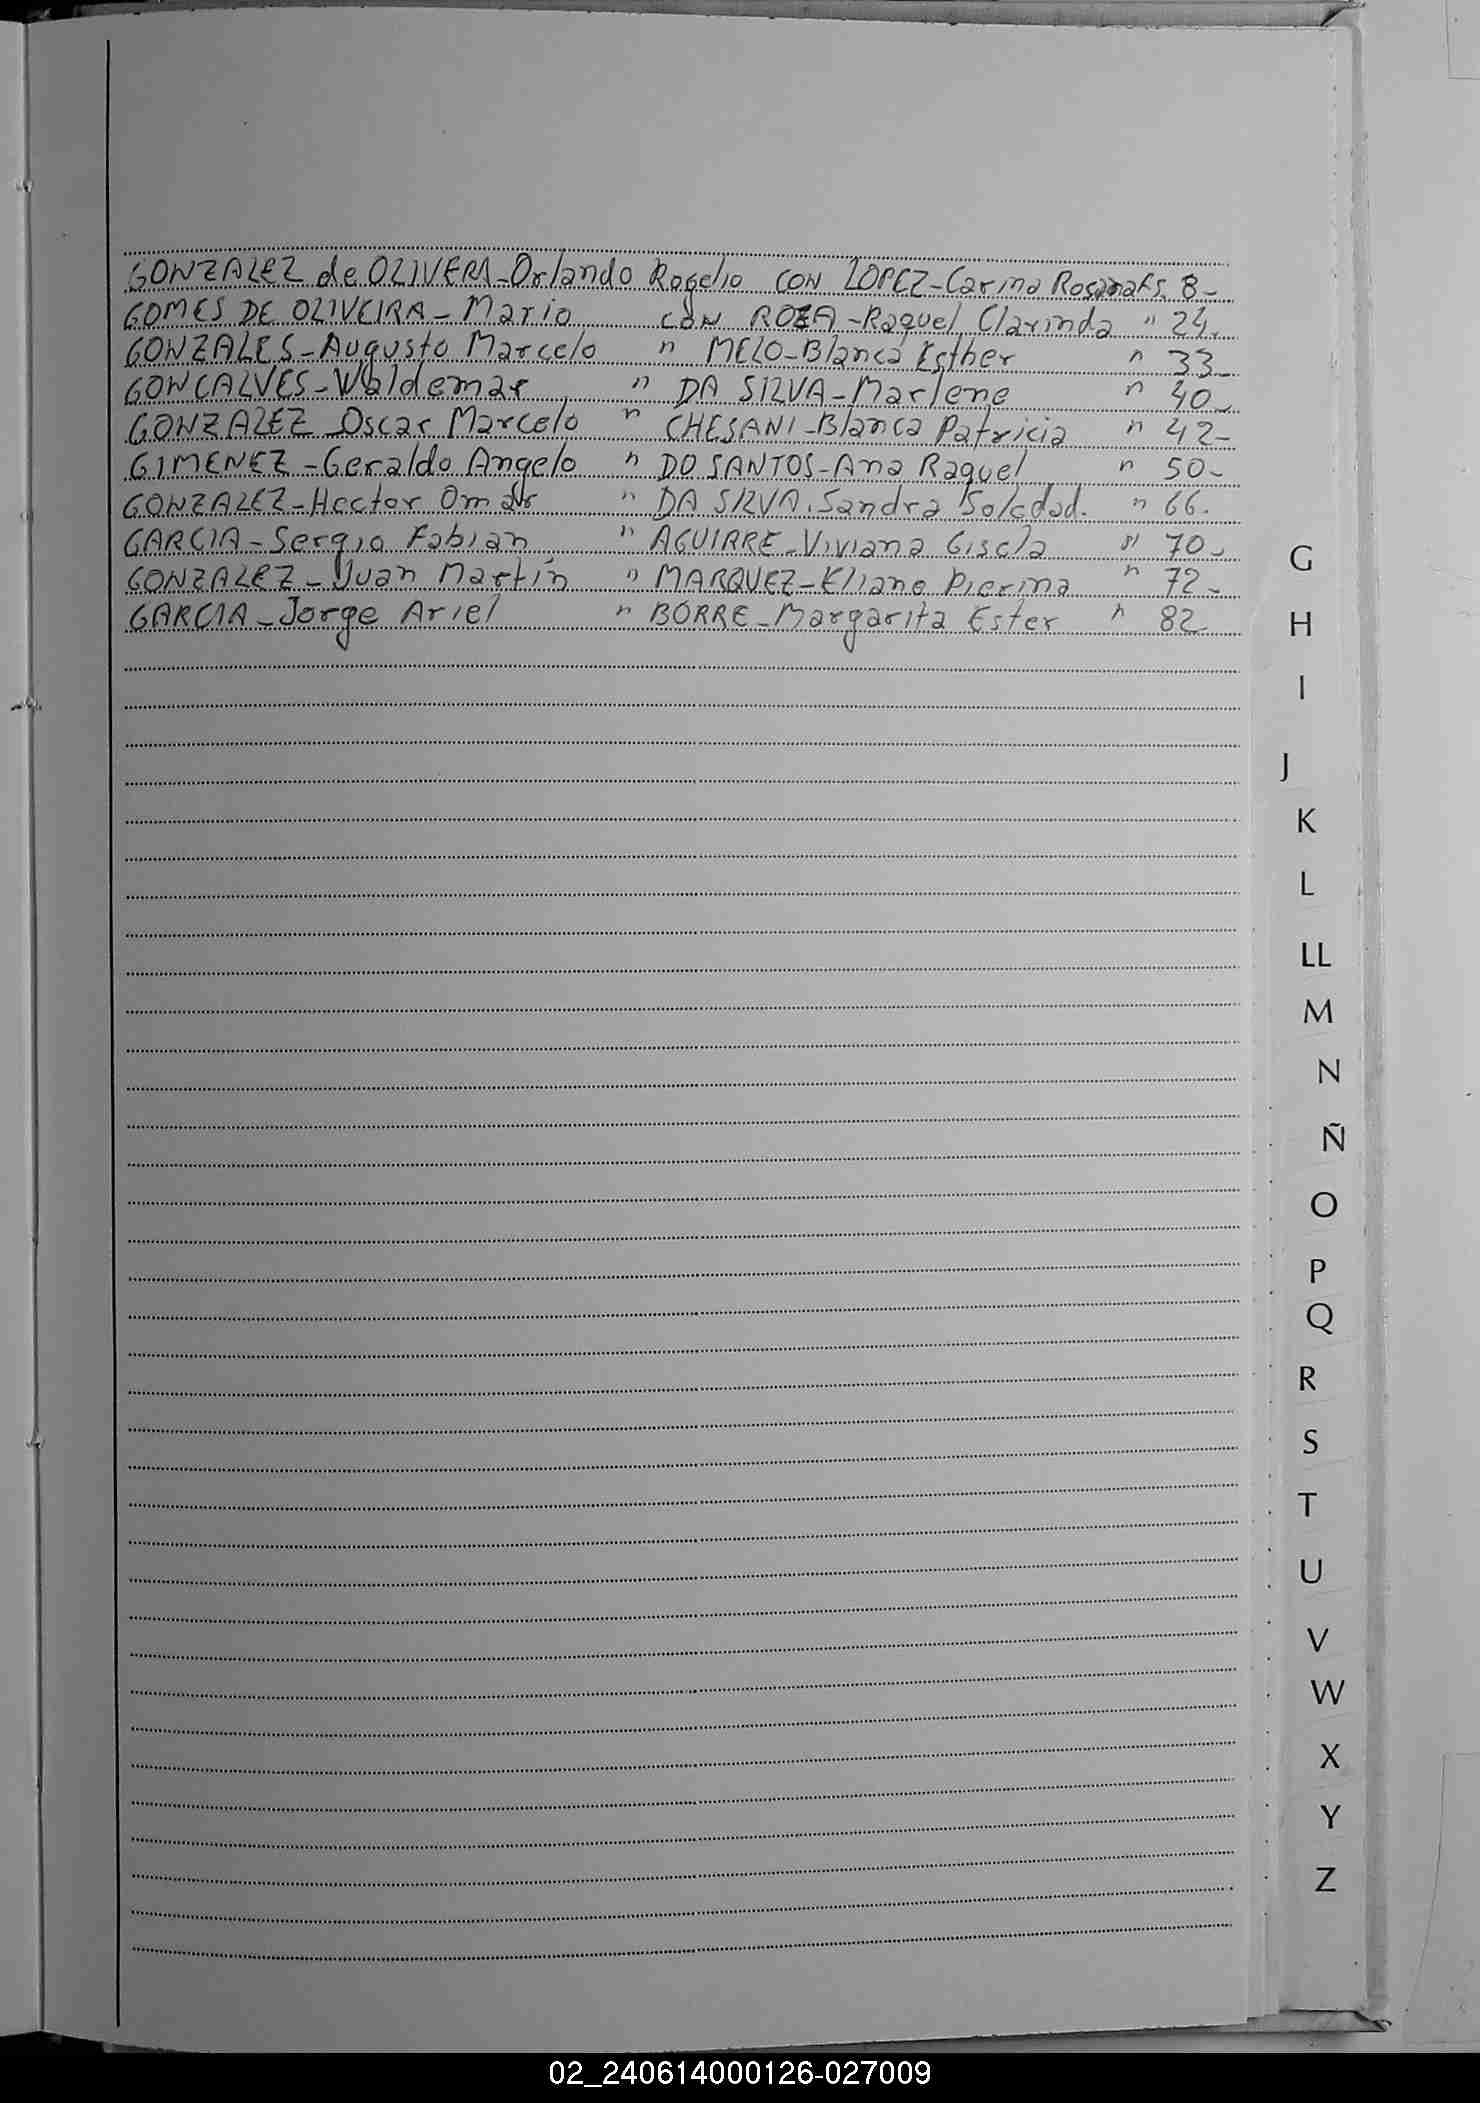 GONZALEZ de OLIVERA-Orlando Rogelio CON LOPEZ-Carina Rosana Fs. 8-
GOMES DE OLIVEIRA-Mario CON ROZA-Raquel Clarinda " 24.
GONZALES-Augusto Marcelo " MELO-Blanca Esther " 33-
GONCALVES-Waldemar " DA SILVA-Marlene " 40-
GONZALEZ Oscar Marcelo " CHESANI-Blanca Patricia " 42-
GIMENEZ-Geraldo Angelo " DO SANTOS-Ana Raquel " 50-
GONZALEZ-Hector Omar " DA SILVA.Sandra Soledad. " 66.
GARCIA-Sergio Fabian " AGUIRRE-Viviana Gisela " 70-
GONZALEZ-Juan Martin " MARQUEZ-Eliana Pierina " 72-
GARCIA-Jorge Ariel " BORRE-Margarita Ester " 82
G
H
I
J
K
L
LL
M
N
Ñ
O
P
Q
R
S
T
U
V
W
X
Y
Z
02_240614000126-027009